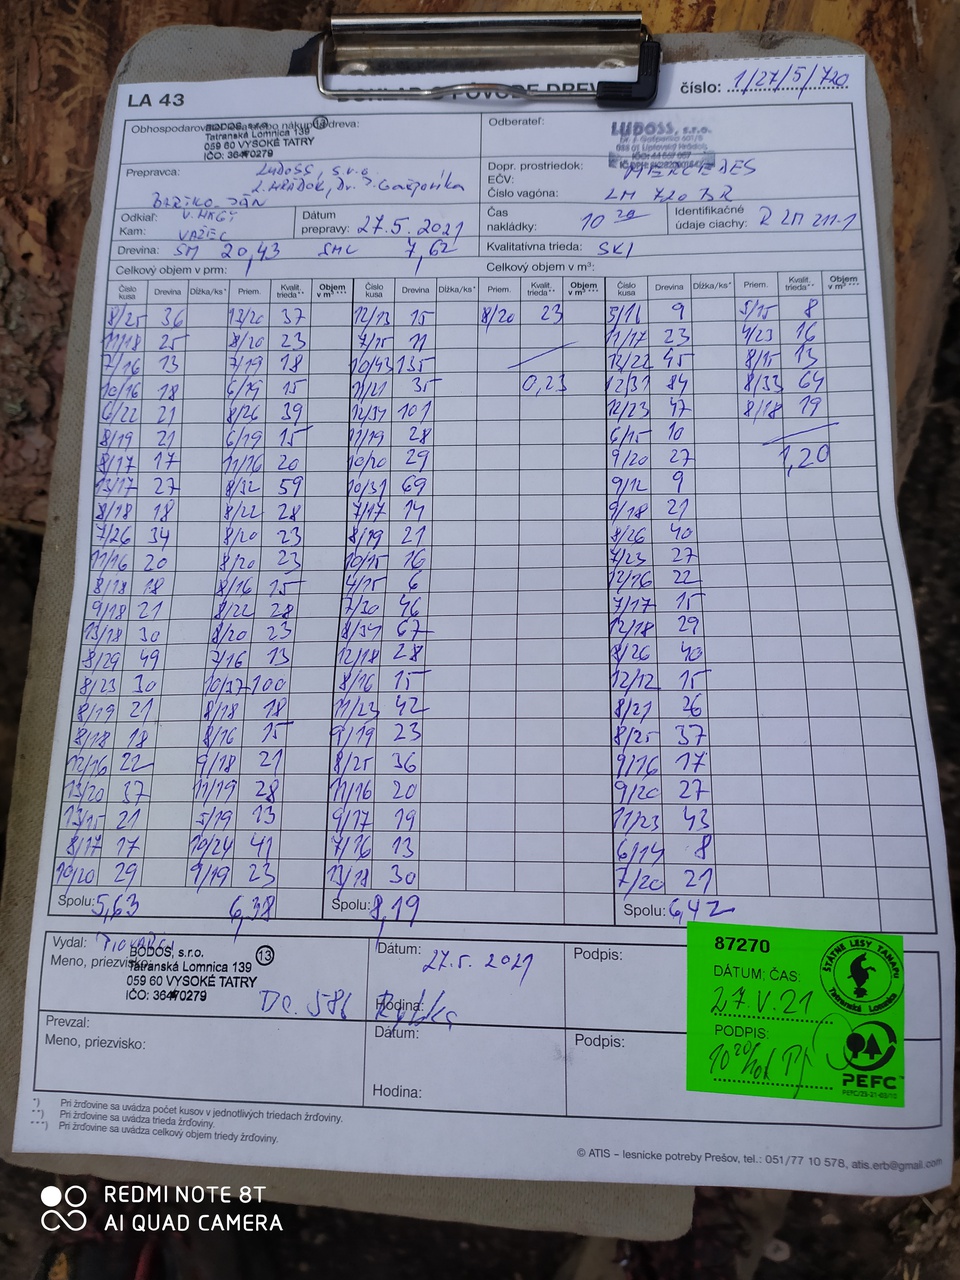 LA 43
číslo: 1/27/5/720
Obhospodarovateľ
BODOS, s.r.o. 13
Tatranská Lomnica 139
059 60 VYSOKÉ TATRY
IČO: 36470279
Odberateľ:
LUDOSS, s.r.o.
Prepravca: Ludoss, s.r.o.
L. HRÁDOK, Dr. J. Gašperíka
Dopr. prostriedok: MERCEDES
EČV:
Číslo vagóna: LM 720 BR
Odkiaľ:
Kam: VAŽEC
Dátum
prepravy: 27.5.2021
Čas
nakládky: 10 20
Identifikačné
údaje ciachy: R LM 211-1
Drevina: SM 20,43 SMC 7,62
Kvalitatívna trieda: SKI
Celkový objem v prm: Celkový objem v m³:
Číslo kusa Drevina Dĺžka/ks* Priem. Kvalit. trieda** Objem v m³*** Číslo kusa Drevina Dĺžka/ks* Priem. Kvalit. trieda** Objem v m³*** Číslo kusa Drevina Dĺžka/ks* Priem. Kvalit. trieda** Objem v m³***
8/25 36 12/20 37 12/13 15 8/20 23 5/16 9 5/15 8
11/18 25 8/20 23 7/15 11 11/17 23 4/23 16
7/16 13 7/19 18 10/43 135 13/22 45 8/15 13
10/16 18 6/19 15 11/21 35 0,23 12/31 84 8/33 64
6/22 21 8/26 39 12/31 101 12/23 47 8/18 19
8/19 21 6/19 15 11/19 28 6/15 10
8/17 17 11/16 20 10/20 29 9/20 27 1,20
13/17 27 8/32 59 10/31 69 9/12 9
8/18 18 8/22 28 7/17 14 9/18 21
7/26 34 8/20 23 8/19 21 8/26 40
11/16 20 8/20 23 10/15 16 7/23 27
8/18 18 8/16 15 4/15 6 12/16 22
9/18 21 8/22 28 7/30 46 7/17 15
13/18 30 8/20 23 8/34 67 12/18 29
8/29 49 7/16 13 12/18 28 8/26 40
8/23 30 10/37 100 8/16 15 12/12 15
8/19 21 8/18 18 11/23 42 8/21 26
8/18 18 8/16 15 9/19 23 8/25 37
12/16 22 9/18 21 8/25 36 9/16 17
13/20 37 11/19 28 11/16 20 9/20 27
13/15 21 5/19 13 9/17 19 11/23 43
8/17 17 10/24 41 7/16 13 6/14 8
10/20 29 9/19 23 13/18 30 7/20 21
Spolu: 5,63 6,38 Spolu: 8,19 Spolu: 6,42
Vydal:
Meno, priezvisko:
BODOS, s.r.o. 13
Tatranská Lomnica 139
059 60 VYSOKÉ TATRY
IČO: 36470279
Dc. 586
Dátum: 27.5.2021
Hodina:
Podpis:
Prevzal:
Meno, priezvisko:
Dátum:
Hodina:
Podpis:
87270
DÁTUM; ČAS:
27.V.21
PODPIS:
10 20
ŠTÁTNE LESY TANAPu
Tatranská Lomnica
PEFC™
*) Pri žrďovine sa uvádza počet kusov v jednotlivých triedach žrďoviny.
**) Pri žrďovine sa uvádza trieda žrďoviny.
***) Pri žrďovine sa uvádza celkový objem triedy žrďoviny.
© ATIS – lesnícke potreby Prešov, tel.: 051/77 10 578, atis.erb@gmail.com
REDMI NOTE 8T
AI QUAD CAMERA